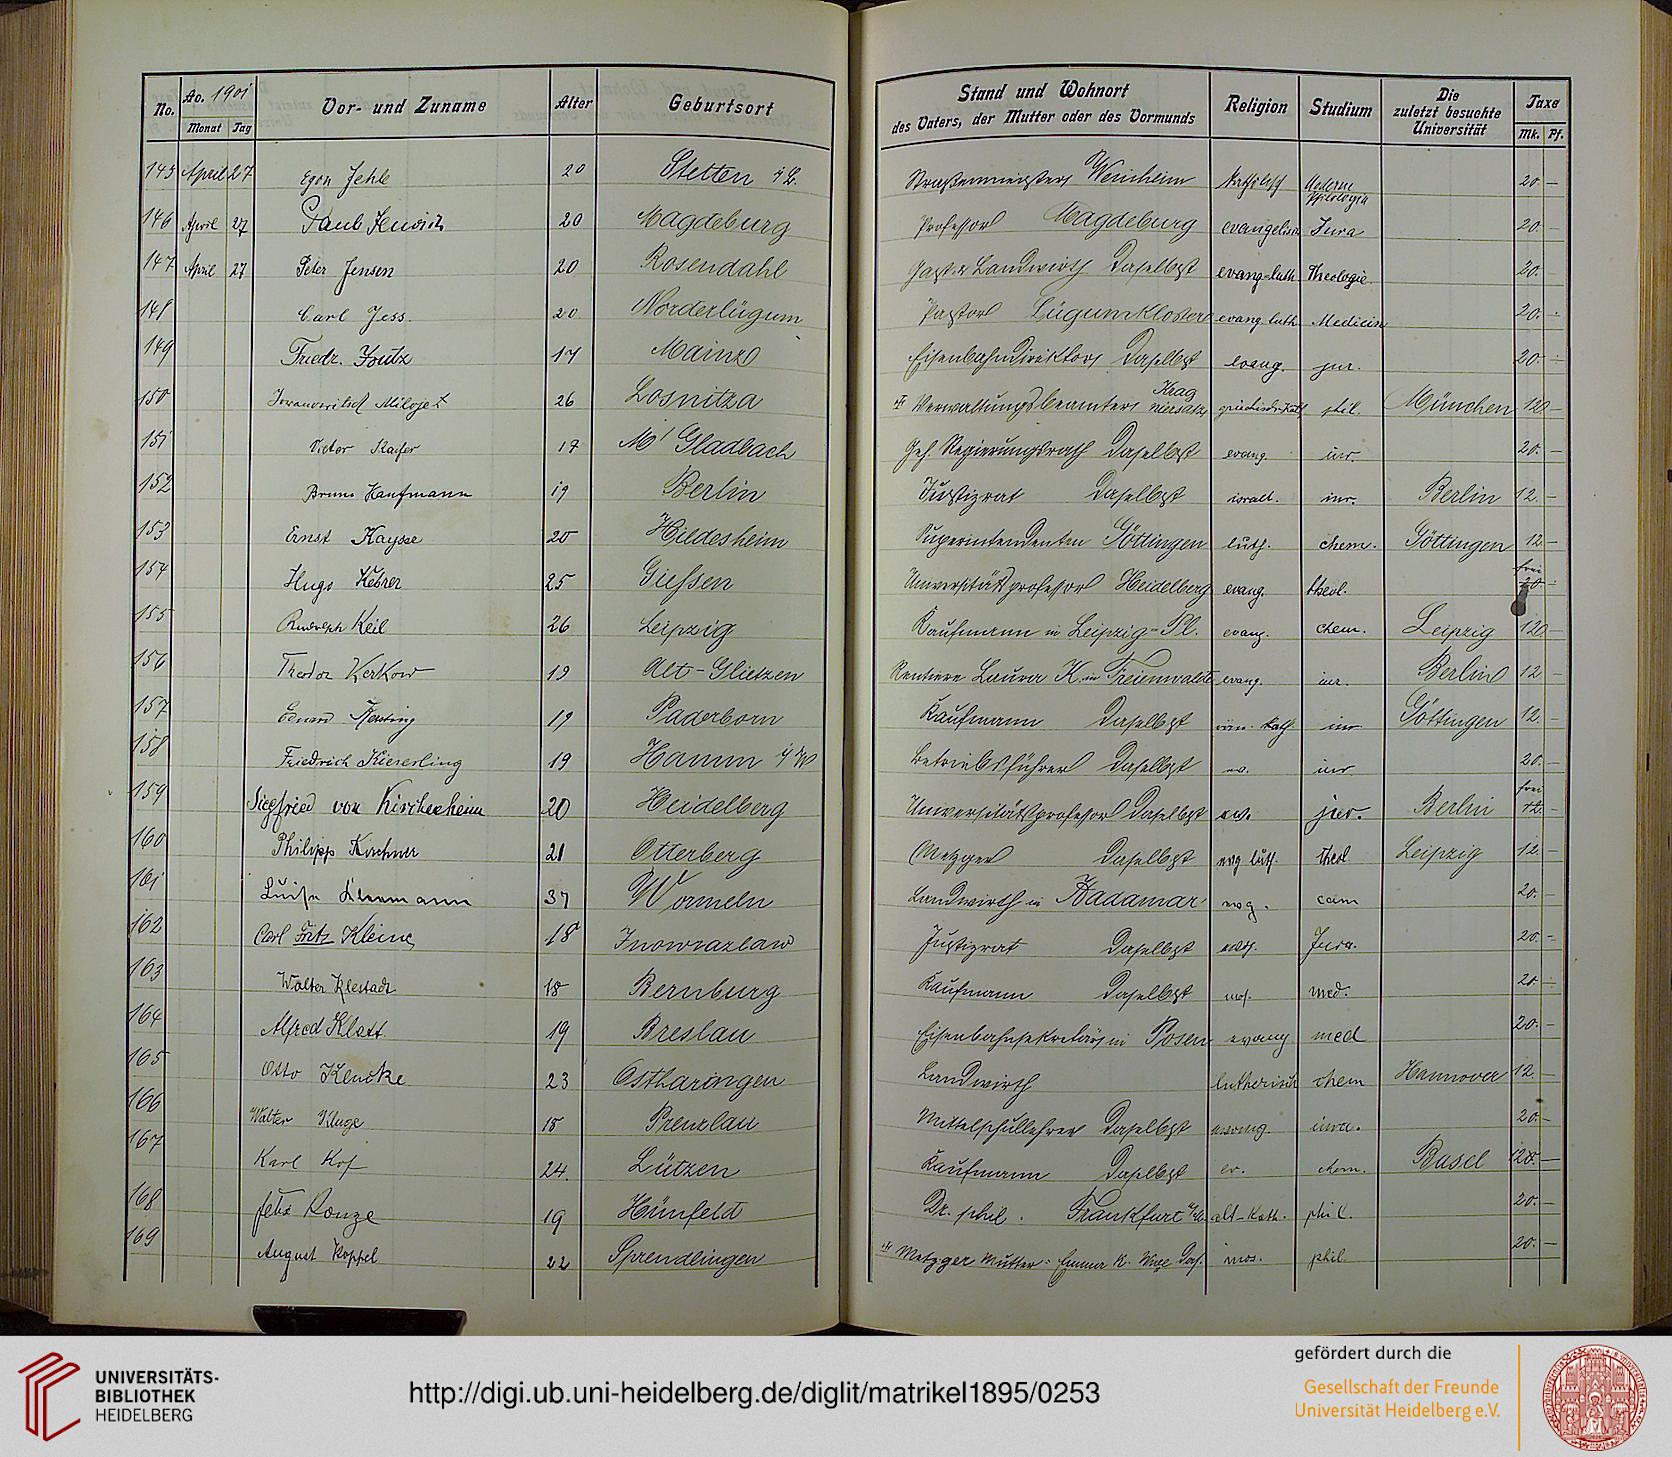 No. Ao. 1901 Vor- und Zuname Alter Geburtsort Stand und Wohnort Religion Studium Die zuletzt besuchte Universität Taxe
Monat Tag des Vaters, der Mutter oder des Vormunds Mk. Pf.
145 April 27 Egon Jehle 20 Stetten Straßenmeisters Weinheim katholisch Moderne Philologie 20 —
146 April 27 Paul 20 Magdeburg Professor Magdeburg evangelisch Jura 20 —
147 April 27 Peter Jensen 20 Rosendahl Landwirth Daselbst evang-luth. Theologie. 20. —
148 Carl Jess. 20 Norderlügum Pastor Lügumkloster evang. luth. Medicin 20.
149 Friedr. 17 Mainz Eisenbahndirektors Daselbst evang. jur. 20. —
150 Milojet 26 Losnitza Verwaltungsbeamters phil. München 120 —
151 Victor Kaifer 17 M' Gladbach Geh. Regierungsrath Daselbst evang. iur. 20. —
152 Bruno Kaufmann 19 Berlin Justizrat Daselbst israel. iur. Berlin 12. —
153 Ernst Kayser 20 Hildesheim Superintendenten Göttingen luth. chem. Göttingen 12. —
154 Hugo Kehrer 25 Giessen Universitätsprofessor Heidelberg evang. theol. frei 20
155 Rudolph Keil 26 Leipzig Kaufmann in Leipzig-Pl. evang. chem. Leipzig 120 —
156 Theodor Kerkow 19 Alt-Glietzen Rentiere Laura K. in Freienwalde evang. iur. Berlin 12 —
157 Eduard Kersting 19 Paderborn Kaufmann Daselbst röm. kath iur Göttingen 12. —
158 Friedrich Kieserling 19 Hamm i/W Betriebsführer Daselbst ev. iur 20. —
159 Siegfried von Kirchenheim 20 Heidelberg Universitätsprofessor Daselbst ev. jur. Berlin frei 12. —
160 Philipp Kirchner 21 Otterberg Metzger Daselbst evg luth. theol Leipzig 12. —
161 Luise 37 Wormeln Landwirth in Hadamar cam 20. —
162 Carl Fritz Kleine 18 Inowrazlaw Justizrat Daselbst evg. Jura. 20 —
163 Walter Klestadt 18 Bernburg Kaufmann Daselbst mos. med. 20 —
164 Alfred Klatt 19 Breslau Eisenbahnsekretärs in Posen evang med 20. —
165 Otto Klencke 23 Ostharingen Landwirth lutherisch chem Hannover 12. —
166 Walter Kluge 18 Prenzlau Mittelschullehrer Daselbst evang. iura. 20. —
167 Karl 24. Lützen Kaufmann Daselbst ev. chem. Basel 120. —
168 Felix 19 Hünfeld Dr. phil. Frankfurt a/M. alt-kath. phil. 20. —
169 August Koppel 22 Sprendlingen Metzger Mutter: Emma K. Wwe Das. mos. phil. 20. —
UNIVERSITÄTS-
BIBLIOTHEK
HEIDELBERG
http://digi.ub.uni-heidelberg.de/diglit/matrikel1895/0253
gefördert durch die
Gesellschaft der Freunde
Universität Heidelberg e.V.